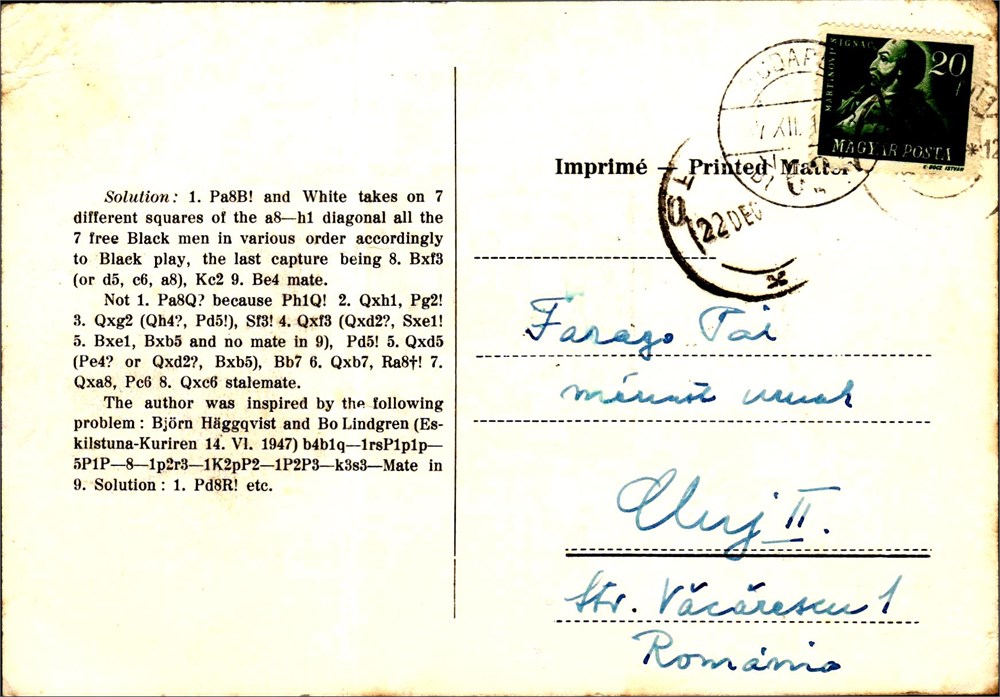 Solution: 1. Pa8B! and White takes on 7
different squares of the a8—h1 diagonal all the
7 free Black men in various order accordingly
to Black play, the last capture being 8. Bxf3
(or d5, c6, a8), Kc2 9. Be4 mate.
Not 1. Pa8Q? because Ph1Q! 2. Qxh1, Pg2!
3. Qxg2 (Qh4?, Pd5!), Sf3! 4. Qxf3 (Qxd2?, Sxe1!
5. Bxe1, Bxb5 and no mate in 9), Pd5! 5. Qxd5
(Pe4? or Qxd2?, Bxb5), Bb7 6. Qxb7, Ra8†! 7.
Qxa8, Pc6 8. Qxc6 stalemate.
The author was inspired by the following
problem: Björn Häggqvist and Bo Lindgren (Es-
kilstuna-Kuriren 14. VI. 1947) b4b1q—1rsP1p1p—
5P1P—8—1p2r3—1K2pP2—1P2P3—k3s3—Mate in
9. Solution: 1. Pd8R! etc.
MARTINOVICS IGNÁC
20
MAGYAR POSTA
XII
Imprimé — Printed Matter
22 DEC
Faragó Pál
mérnök urnak
Cluj II.
Str. Văcărescu 1
Románia